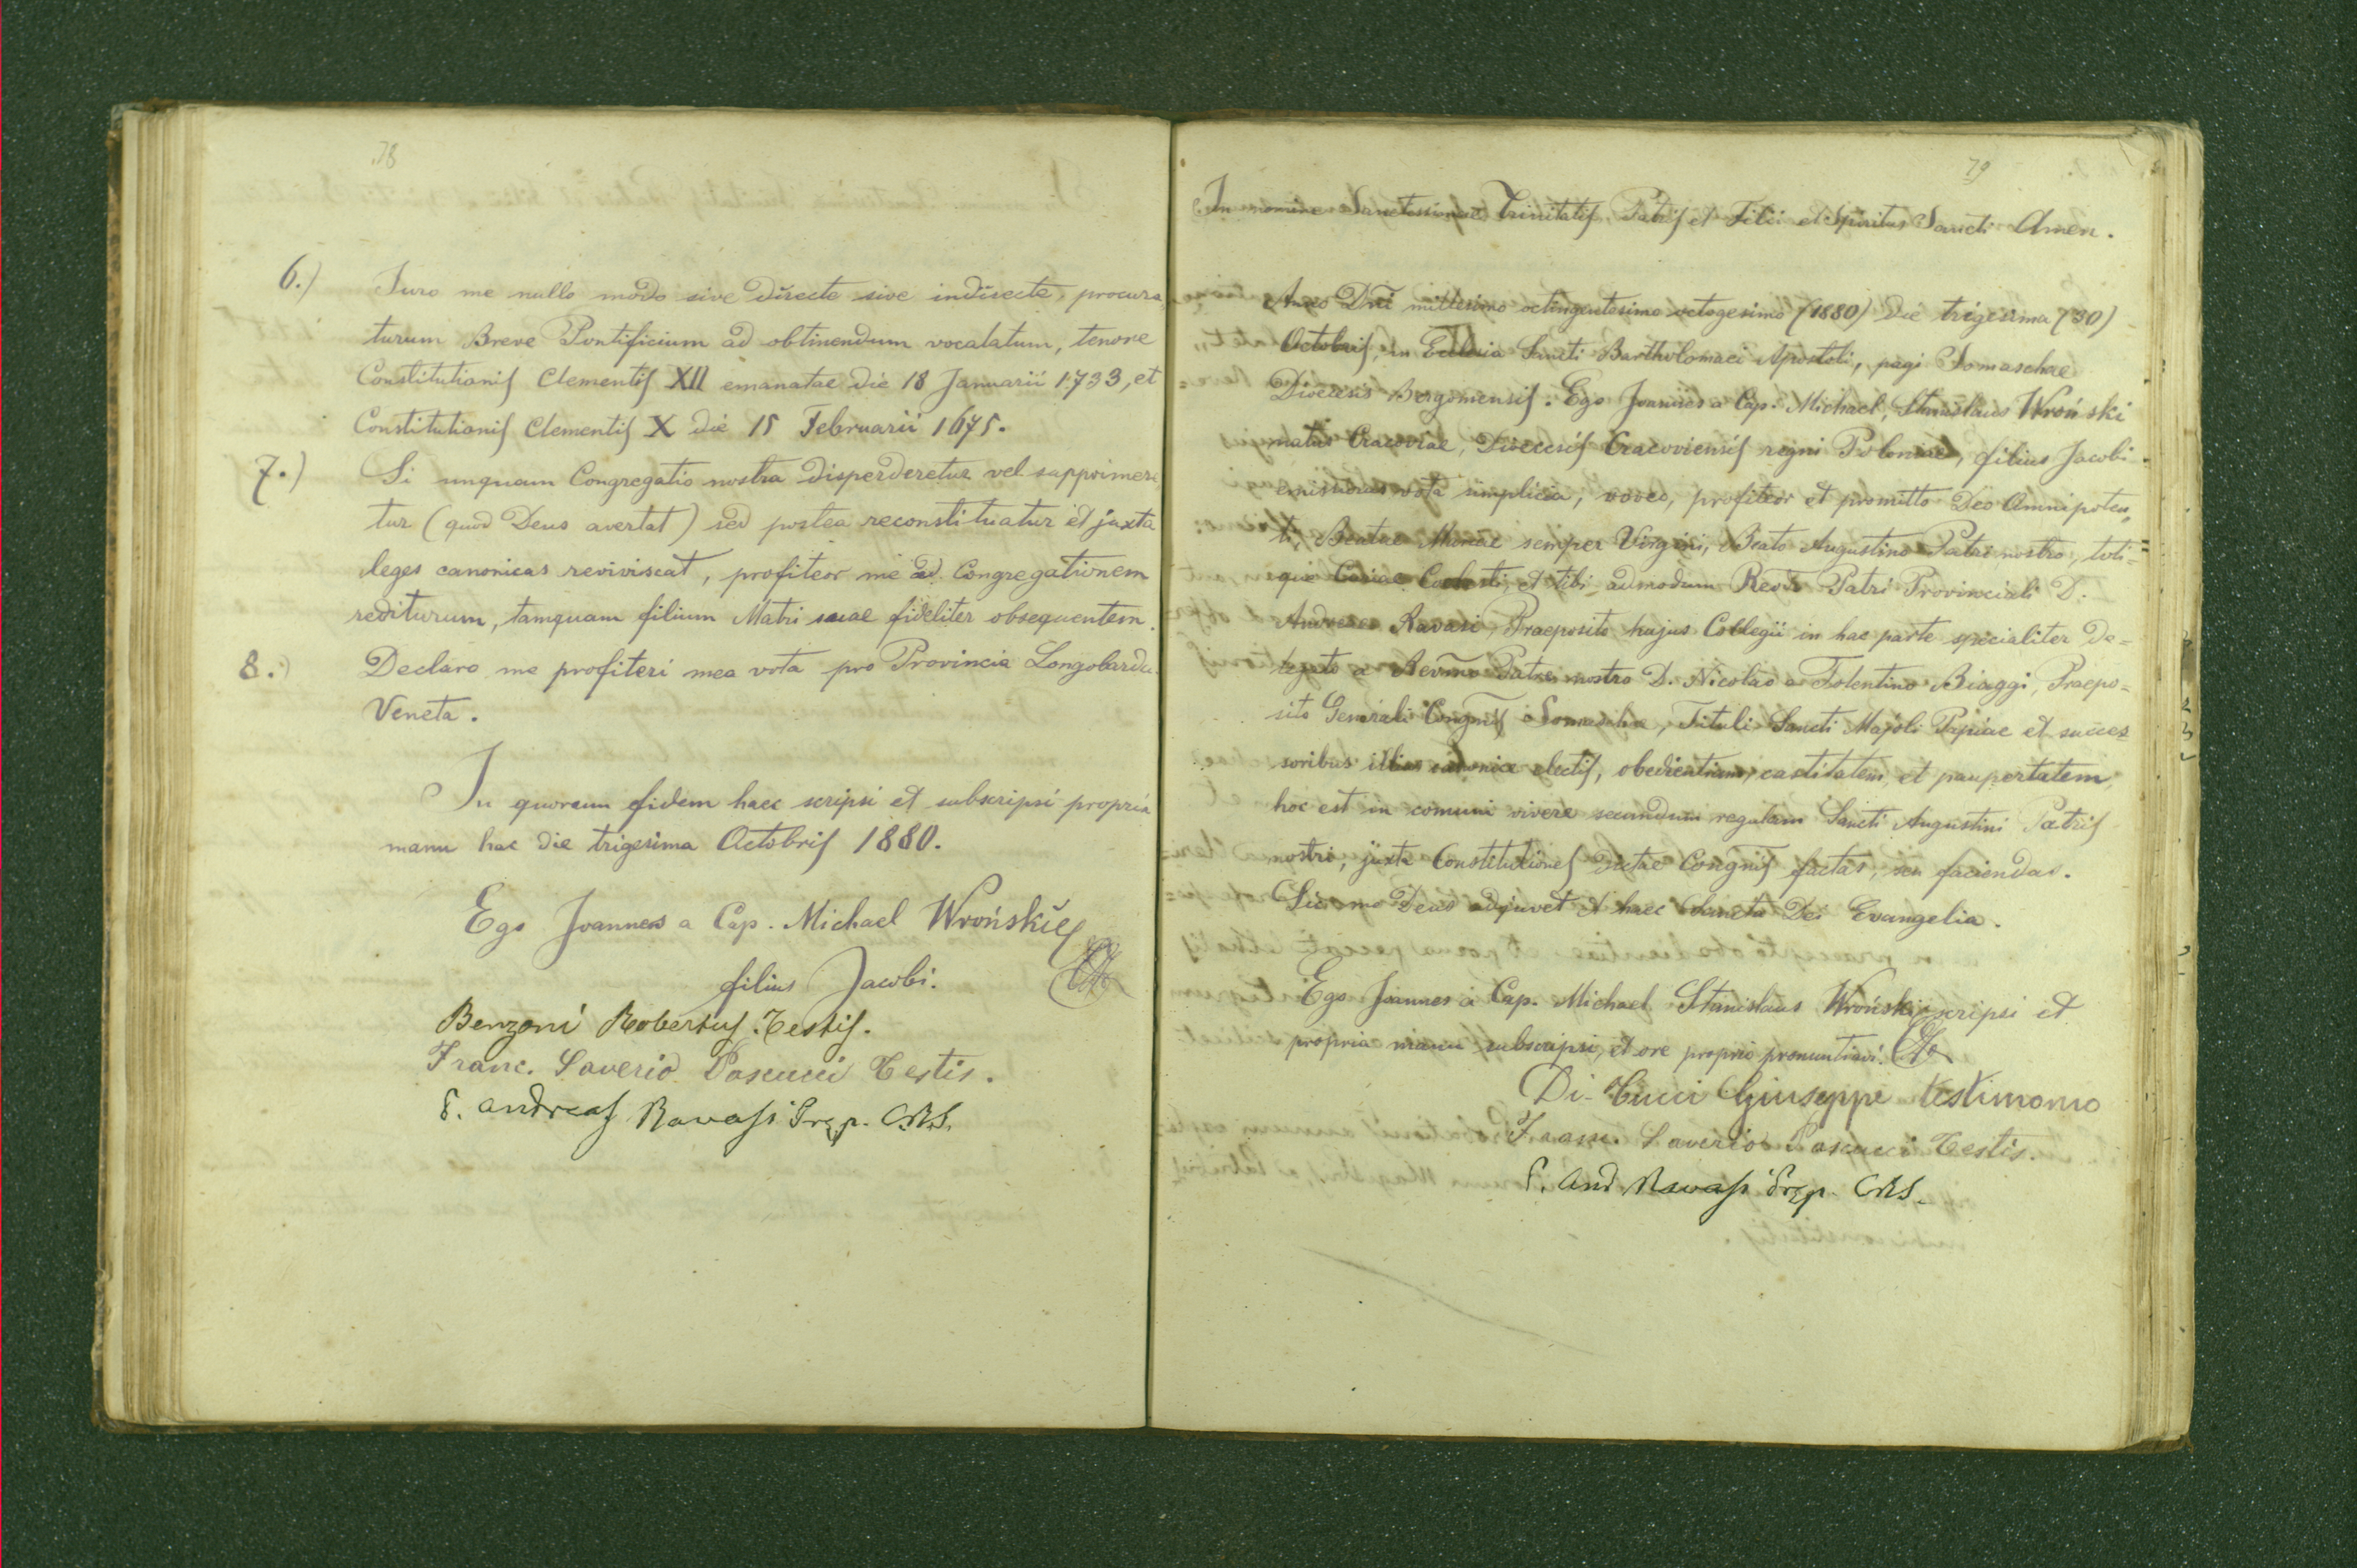 78
6.) Juro me nullo modo sive directe sive indirecte, procura
turum Breve Pontificium ad obtinendum vocalatum, tenore
Constitutionis Clementis XII emanatae die 18 Januarii 1733, et
Constitutionis Clementis X die 15 Februarii 1675.
7.) Si unquam Congregatio nostra disperderetur vel supprimere
tur (quod Deus avertat) sed postea reconstituatur et juxta
leges canonicas reviviscat, profiteor me ad Congregationem
rediturum, tamquam filium Matri suae fideliter obsequentem.
8.) Declaro me profiteri mea vota pro Provincia Longobardo
Veneta.
In quorum fidem haec scripsi et subscripsi propria
manu hac die trigesima Octobris 1880.
Ego Joannes a Cap. Michael Wroński
filius Jacobi.
Benzoni Robertus Testis.
Franc. Saverio Pascucci Testis.
P. Andreas Ravasi Prep. CRS.
79
In nomine Sanctissimae Trinitatis, Patris et Filii et Spiritus Sancti Amen.
Anno Dni millesimo octingentesimo octogesimo (1880) die trigesima (30)
Octobris, in Ecclesia Sancti Bartholomaei Apostoli, pagi Somaschae
Dioecesis Bergomensis. Ego Joannes a Cap. Michael, Stanislaus Wroński
natus Cracoviae, Dioecesis Cracoviensis regni Poloniae, filius Jacobi
emissurus vota simplicia, voveo, profiteor et promitto Deo Omnipoten„
ti, Beatae Mariae semper Virgini, Beato Augustino Patri nostro, toti=
que Curiae Coelesti, et tibi admodum Revdo Patri Provinciali D.
Andreae Ravasi, Praeposito hujus Collegii in hac parte specialiter de=
legato a Revmo Patre nostro D. Nicolao a Tolentino Biaggi, Praepo=
sito Generali Congnis Somaschae, Tituli Sancti Majoli Papiae et succes=
soribus illius canonice electis, obedientiam, castitatem, et paupertatem,
hoc est in comuni vivere secundum regulam Sancti Augustini Patris
nostri, juxta Constitutiones dictae Congnis factas, seu faciendas.
Sic me Deus adjuvet et haec Sancta Dei Evangelia.
Ego Joannes a Cap. Michael Stanislaus Wroński scripsi et
propria manu subscripsi, et ore proprio pronuntiavi.
Di-Tucci Giuseppe testimonio
Franc. Saverio Pascucci Testis.
P. And Ravasi Prep. CRS.